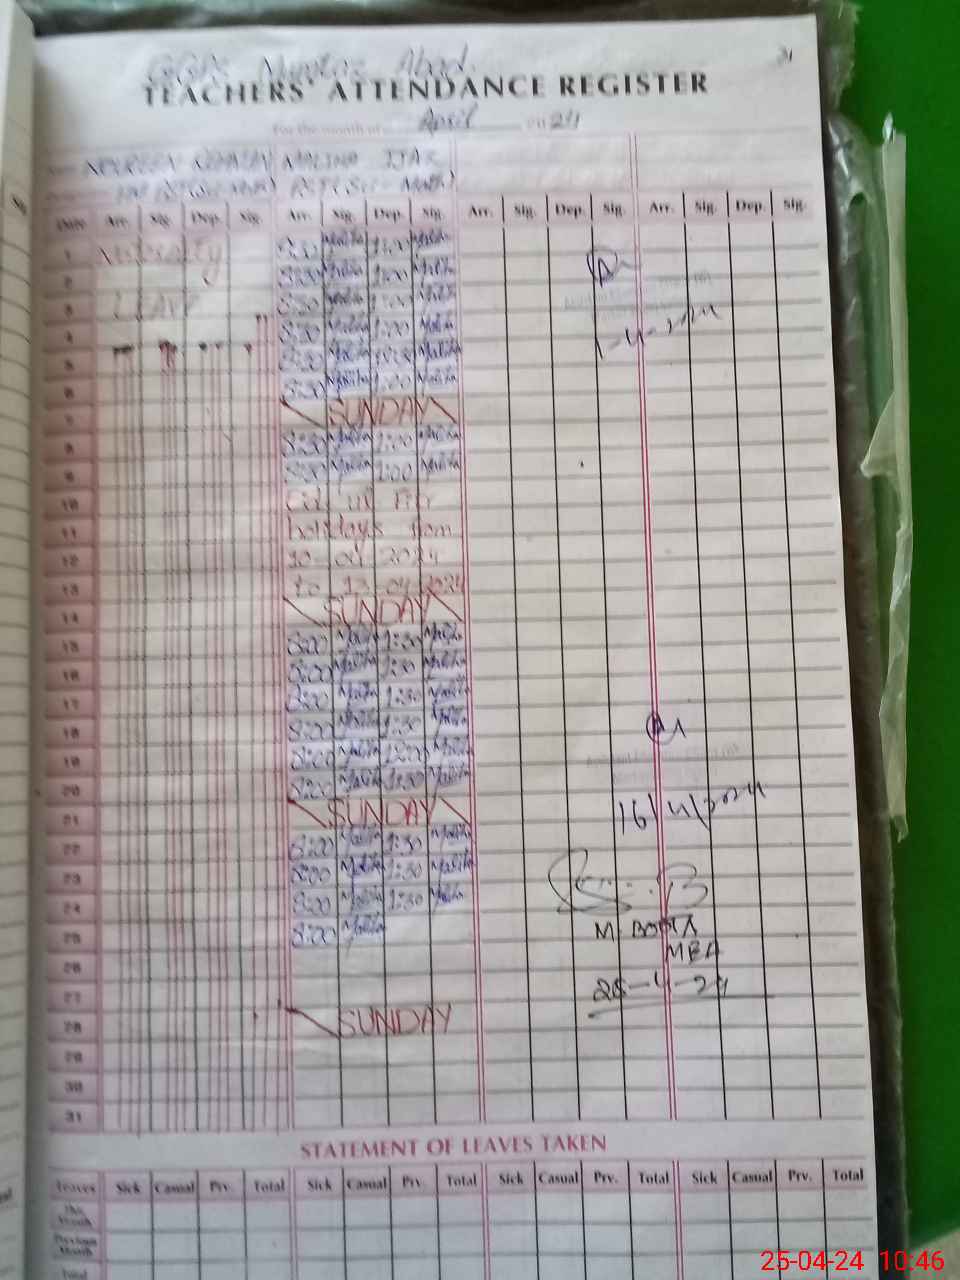 31
TEACHERS' ATTENDANCE REGISTER
For the month of April 24
Date Arr. Sig. Dep. Sig. Arr. Sig. Dep. Sig. Arr. Sig. Dep. Sig. Arr. Sig. Dep. Sig.
1 Maternity 8:30 Maliha 1:00 Maliha
2 8:30 Maliha 1:00 Maliha
3 LEAVE 8:30 Maliha 1:00 Maliha
4 8:30 Maliha 1:00 Maliha
1-4-2024
5 8:30 Maliha Maliha
6 8:30 Maliha 1:00 Maliha
7 SUNDAY
8 8:30 Maliha 1:00 Maliha
9 8:30 Maliha 1:00 Maliha
10 Eid ul Fitr
11 holidays from
12 10-04-2024
13 to 13-04-2024
14 SUNDAY
15 8:00 Maliha 1:30 Maliha
16 8:00 Maliha 1:30 Maliha
17 8:00 Maliha 1:30 Maliha
18 8:00 Maliha 1:30 Maliha
19 8:00 Maliha 12:00 Maliha
20 8:00 Maliha 1:30 Maliha
21 SUNDAY
16/4/2024
22 8:00 Maliha 1:30 Maliha
23 8:00 Maliha 1:30 Maliha
24 8:00 Maliha 1:30 Maliha
25 8:00 Maliha
M. BOOTA
MEA
26
27
28 SUNDAY
29
30
31
STATEMENT OF LEAVES TAKEN
Leaves Sick Casual Prv. Total Sick Casual Prv. Total Sick Casual Prv. Total Sick Casual Prv. Total
This Month
Previous Month
Total
25-04-24 10:46